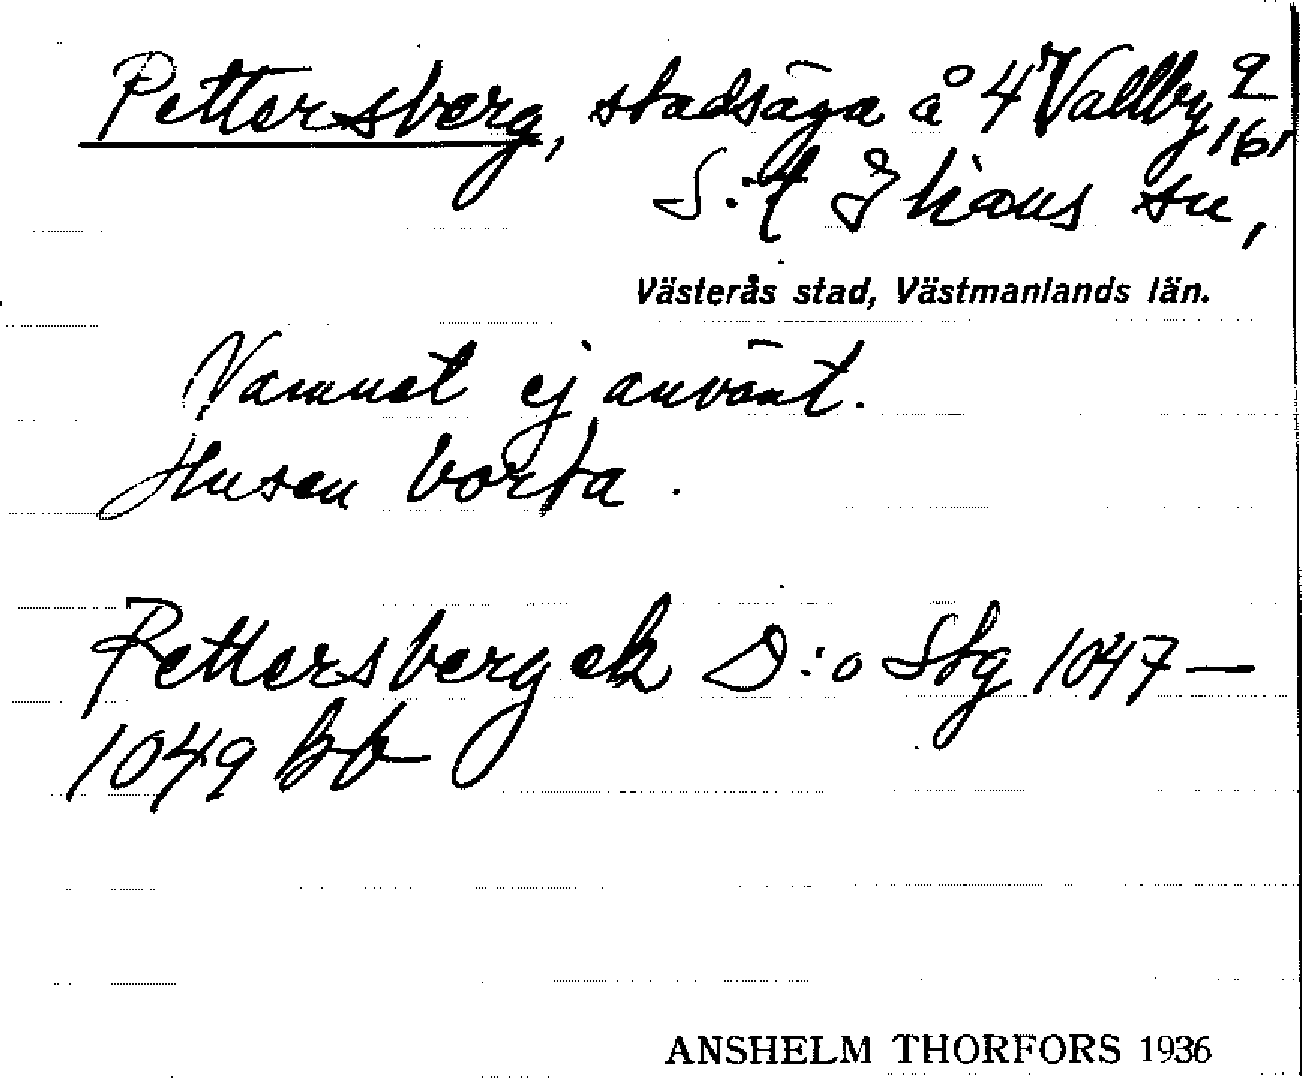 Pettersberg, stadsäga å 4 Vallby 2/161
S:t Ilians sn,
Västerås stad, Västmanlands län.
Namnet ej använt.
Husen borta.
Pettersberg ek D:o Stg 1047—
1049 bb